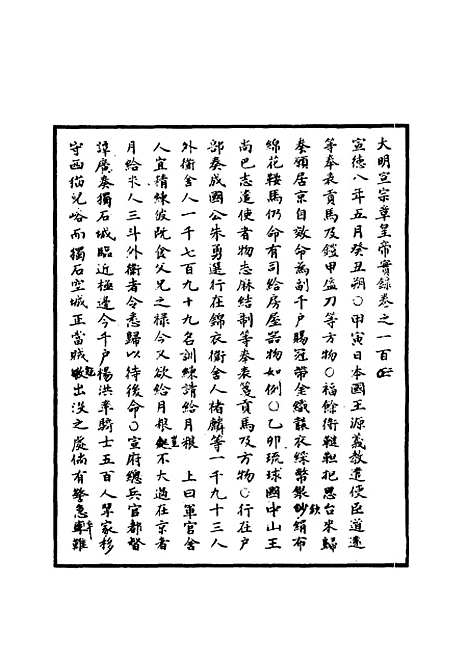 大明宣宗章皇帝實錄卷之一百二
宣德八年五月癸丑朔○甲寅日本國王源義教遣使臣道淵
等奉表貢馬及鎧甲盔刀等方物○福餘衛韃靼把思台來歸
奏願居京自效命為副千戶賜冠帶金織襲衣綵幣銀鈔絹布
綿花鞍馬仍命有司給房屋器物如例○乙卯琉球國中山王
尚巴志遣使者物志麻結制等奉表箋貢馬及方物○行在戶
部奏成國公朱勇選行在錦衣衛舍人褚麟等一千九十三人
外衛舍人一千七百九十九名訓練請給月糧 上曰軍官舍
人宜精練彼既食父兄之祿今又欲給月糧豈不太過在京者
月給米人三斗外衛者令悉歸以待後命○宣府總兵官都督
譚廣奏獨石城臨近極邊今千戶楊洪率騎士五百人挈家移
守西猫兒峪而獨石空城正當賊寇出沒之處倘有警急率難